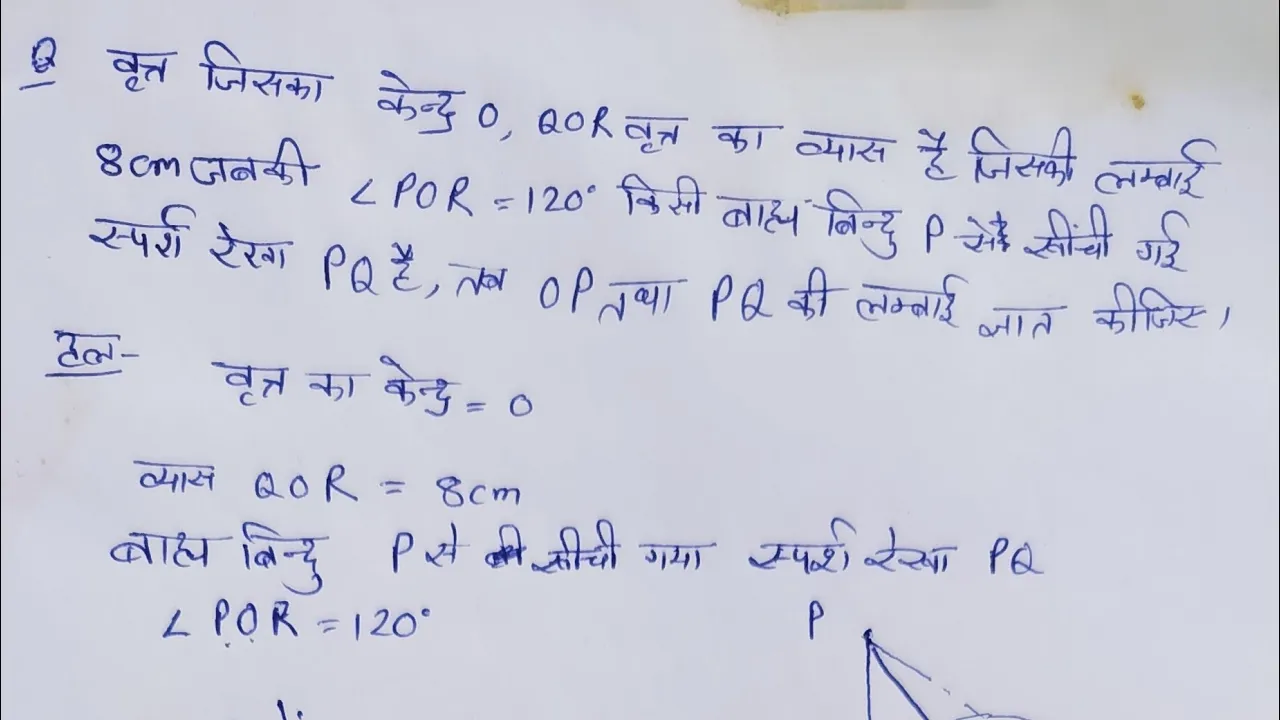 Q वृत्त जिसका केन्द्र O, QOR वृत्त का व्यास है जिसकी लम्बाई
8cm जबकी ∠POR = 120° किसी बाह्य बिन्दु P से खींची गई
स्पर्श रेखा PQ है, तब OP तथा PQ की लम्बाई ज्ञात कीजिए।
हल-
वृत्त का केन्द्र = O
व्यास QOR = 8cm
बाह्य बिन्दु P से खींची गया स्पर्श रेखा PQ
∠POR = 120°
P